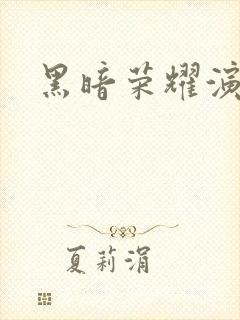 黑暗荣耀演
夏莉涓